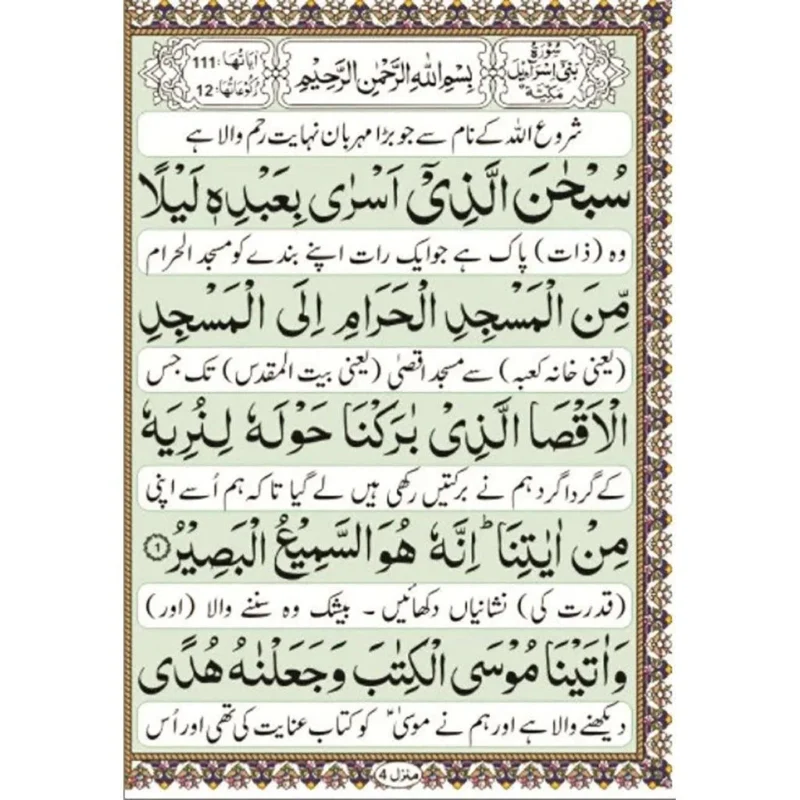 سُوْرَۃُ بَنِیْۤ اِسْرَآءِیْلَ مَکِّیَّۃٌ
بِسْمِ اللّٰہِ الرَّحْمٰنِ الرَّحِیْمِ
اٰیَاتُہَا: 111
رُکُوْعَاتُہَا: 12
شروع اللہ کے نام سے جو بڑا مہربان نہایت رحم والا ہے
سُبْحٰنَ الَّذِیْۤ اَسْرٰی بِعَبْدِہٖ لَیْلًا
وہ (ذات) پاک ہے جو ایک رات اپنے بندے کو مسجد الحرام
مِّنَ الْمَسْجِدِ الْحَرَامِ اِلَی الْمَسْجِدِ
(یعنی خانہ کعبہ) سے مسجد اقصیٰ (یعنی بیت المقدس) تک جس
الْاَقْصَا الَّذِیْ بٰرَکْنَا حَوْلَہٗ لِنُرِیَہٗ
کے گردا گرد ہم نے برکتیں رکھی ہیں لے گیا تا کہ ہم اُسے اپنی
مِنْ اٰیٰتِنَا ؕ اِنَّہٗ ھُوَ السَّمِیْعُ الْبَصِیْرُ ۱
(قدرت کی) نشانیاں دکھائیں ۔ بیشک وہ سننے والا (اور)
وَاٰتَیْنَا مُوْسَی الْکِتٰبَ وَجَعَلْنٰہُ ھُدًی
دیکھنے والا ہے اور ہم نے موسیٰؑ کو کتاب عنایت کی تھی اور اُس
منزل 4